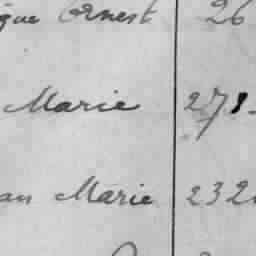 que Ernest 26
Marie 278.
an Marie 232